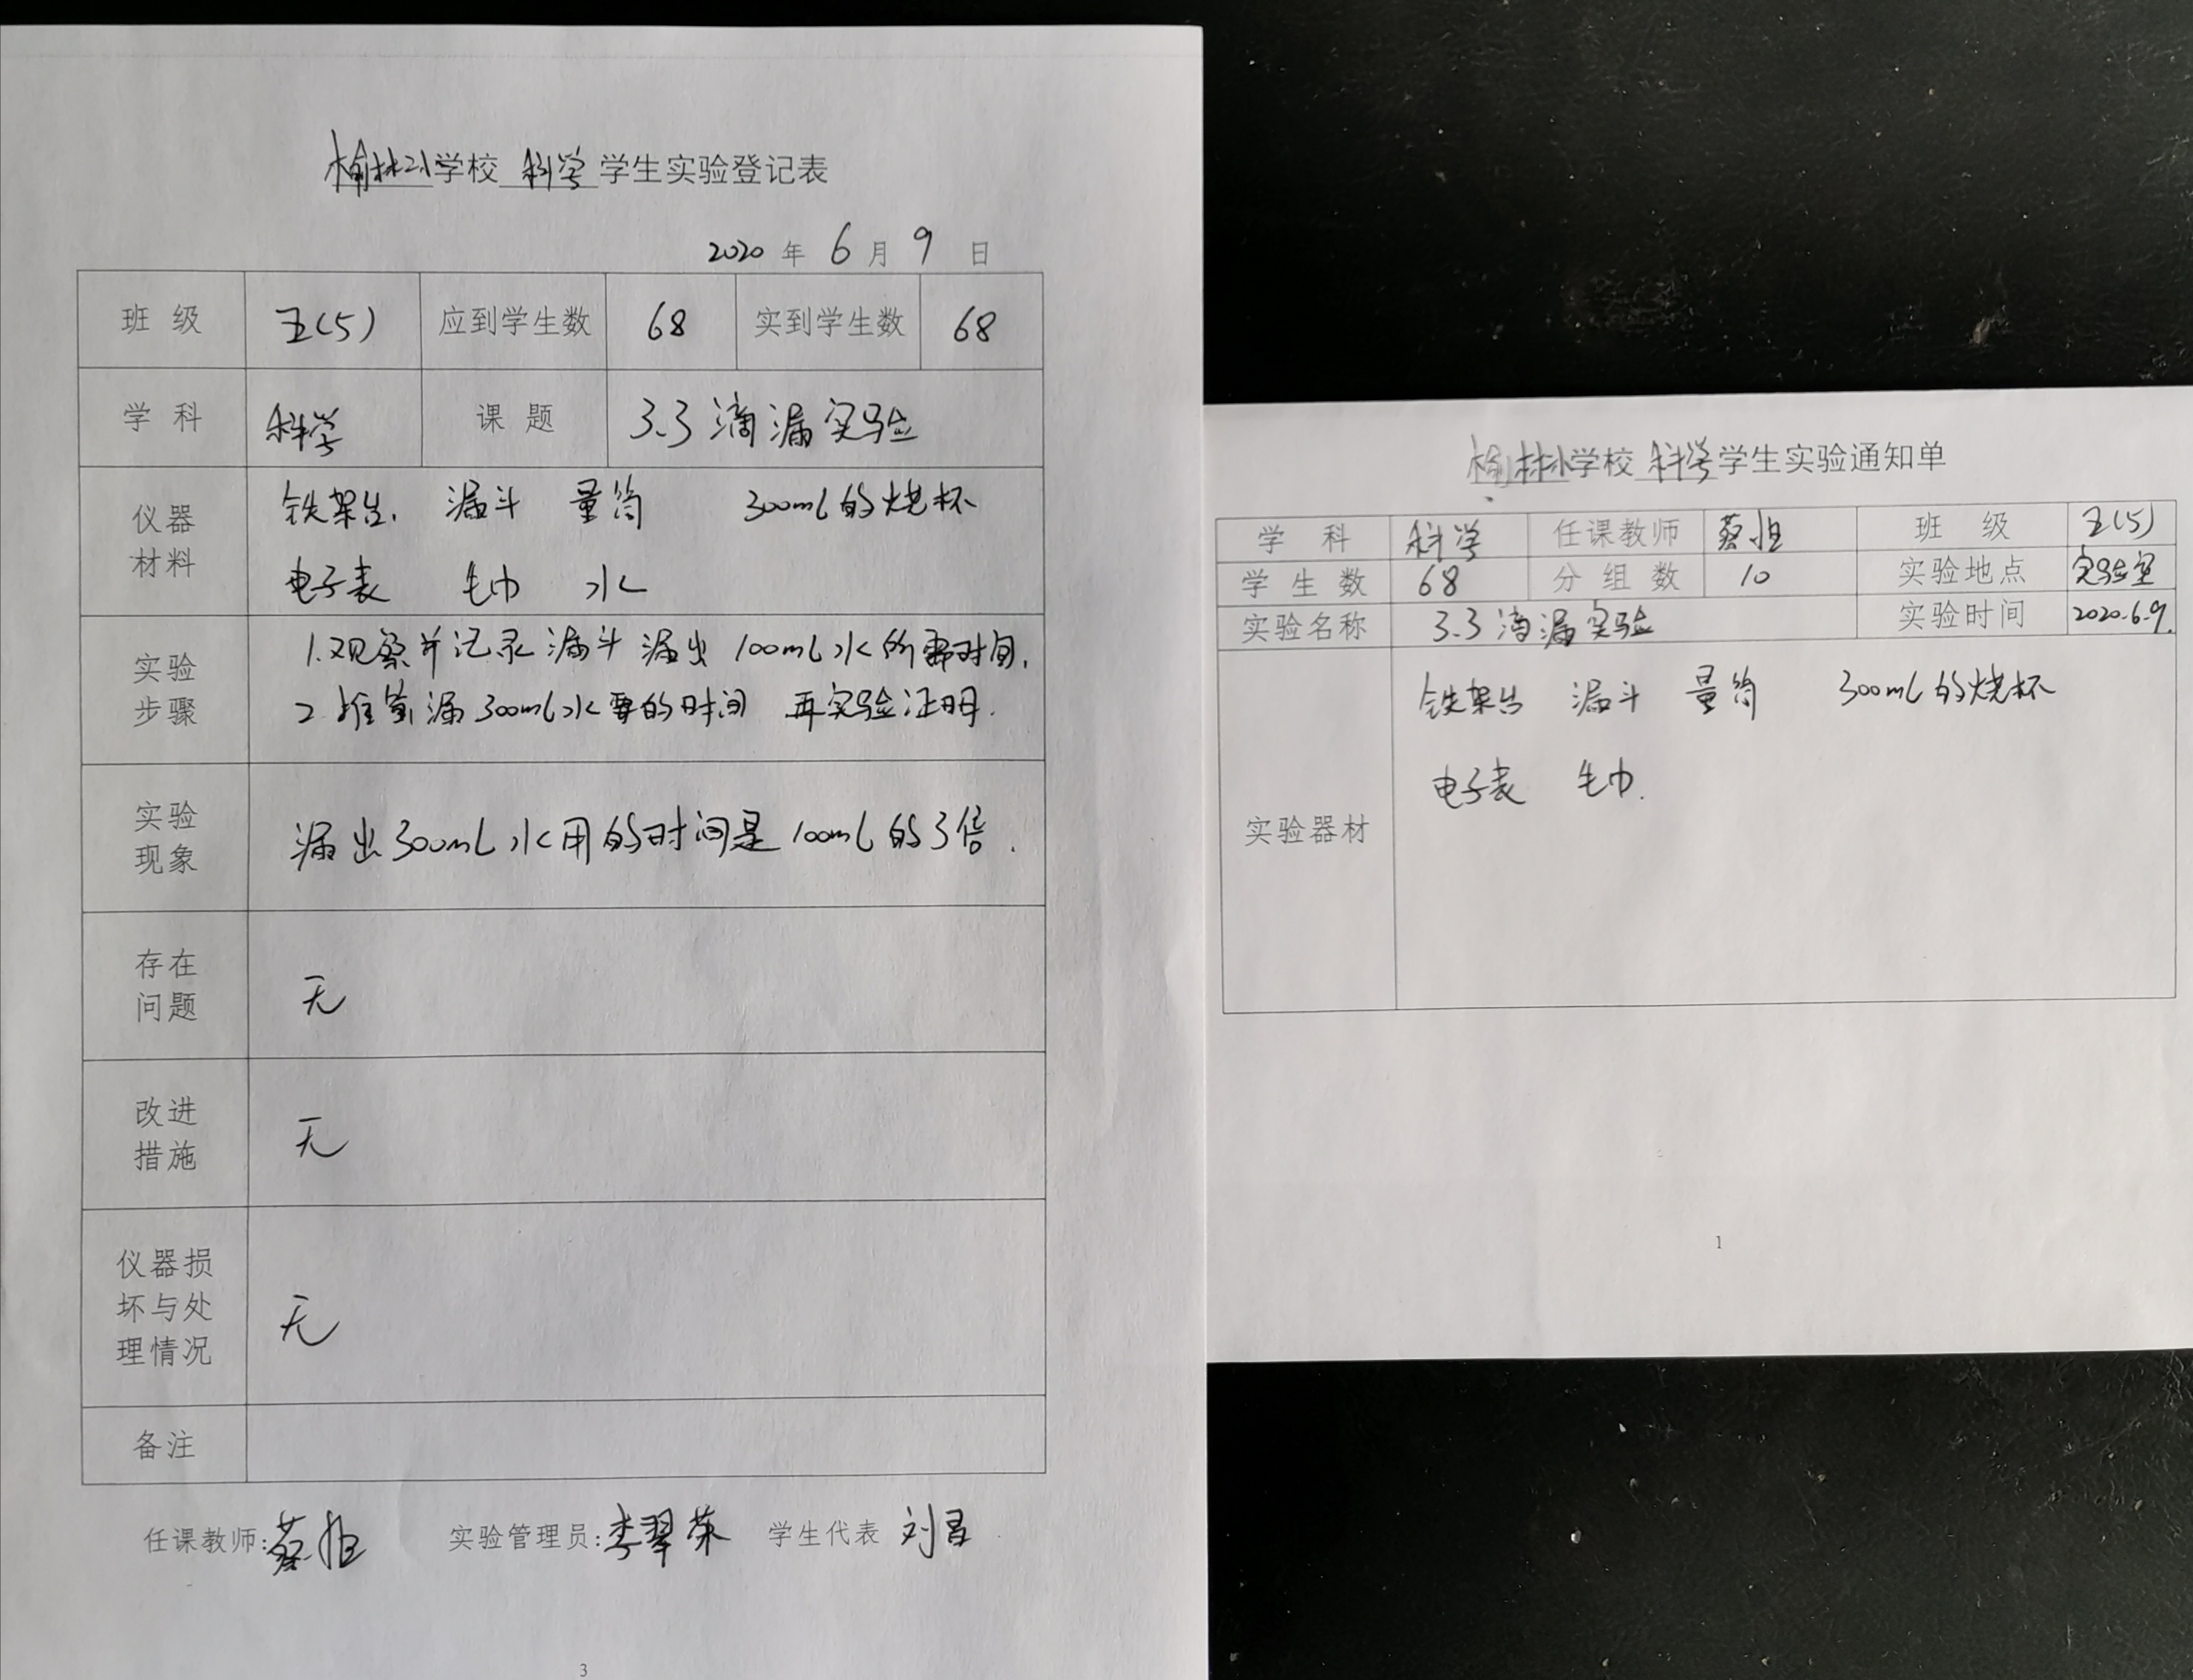 榆林小学校 科学 学生实验登记表
2020 年 6 月 9 日
班 级 五(5) 应到学生数 68 实到学生数 68
学 科 科学 课 题 3.3 滴漏实验
仪器
材料
铁架台. 漏斗 量筒 300mL的烧杯
电子表 毛巾 水
实验
步骤
1.观察并记录漏斗漏出100mL水所需时间.
2 推算漏300mL水要的时间 再实验证明.
实验
现象
漏出300mL水用的时间是100mL的3倍.
存在
问题
无
改进
措施
无
仪器损
坏与处
理情况
无
备注
任课教师:蔡恒 实验管理员:李翠荣 学生代表 刘
3
榆林小学校 科学 学生实验通知单
学 科 科学 任课教师 蔡恒 班 级 五(5)
学 生 数 68 分 组 数 10 实验地点 实验室
实验名称 3.3 滴漏实验 实验时间 2020.6.9.
实验器材
铁架台 漏斗 量筒 300mL的烧杯
电子表 毛巾.
1